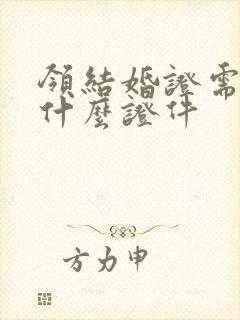 領結婚證需
什麼證件
方力申